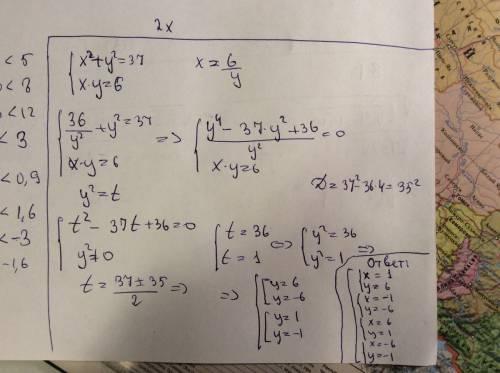 2x
< 5
< 8
< 12
< 3
< 0,9
< 1,6
< -3
-1,6
{ x² + y² = 37
x · y = 6
x = 6/y
{ 36/y² + y² = 37
x · y = 6
=> { (y⁴ - 37 · y² + 36)/y² = 0
x · y = 6
y² = t
D = 37² - 36 · 4 = 35²
{ t² - 37t + 36 = 0
y² ≠ 0
{ t = 36
t = 1
<=> { y² = 36
y² = 1
=>
t = (37 ± 35)/2 =>
=> { [ y = 6
y = -6
[ y = 1
y = -1
Ответ:
{ x = 1
y = 6
{ x = -1
y = -6
{ x = 6
y = 1
{ x = -6
y = -1